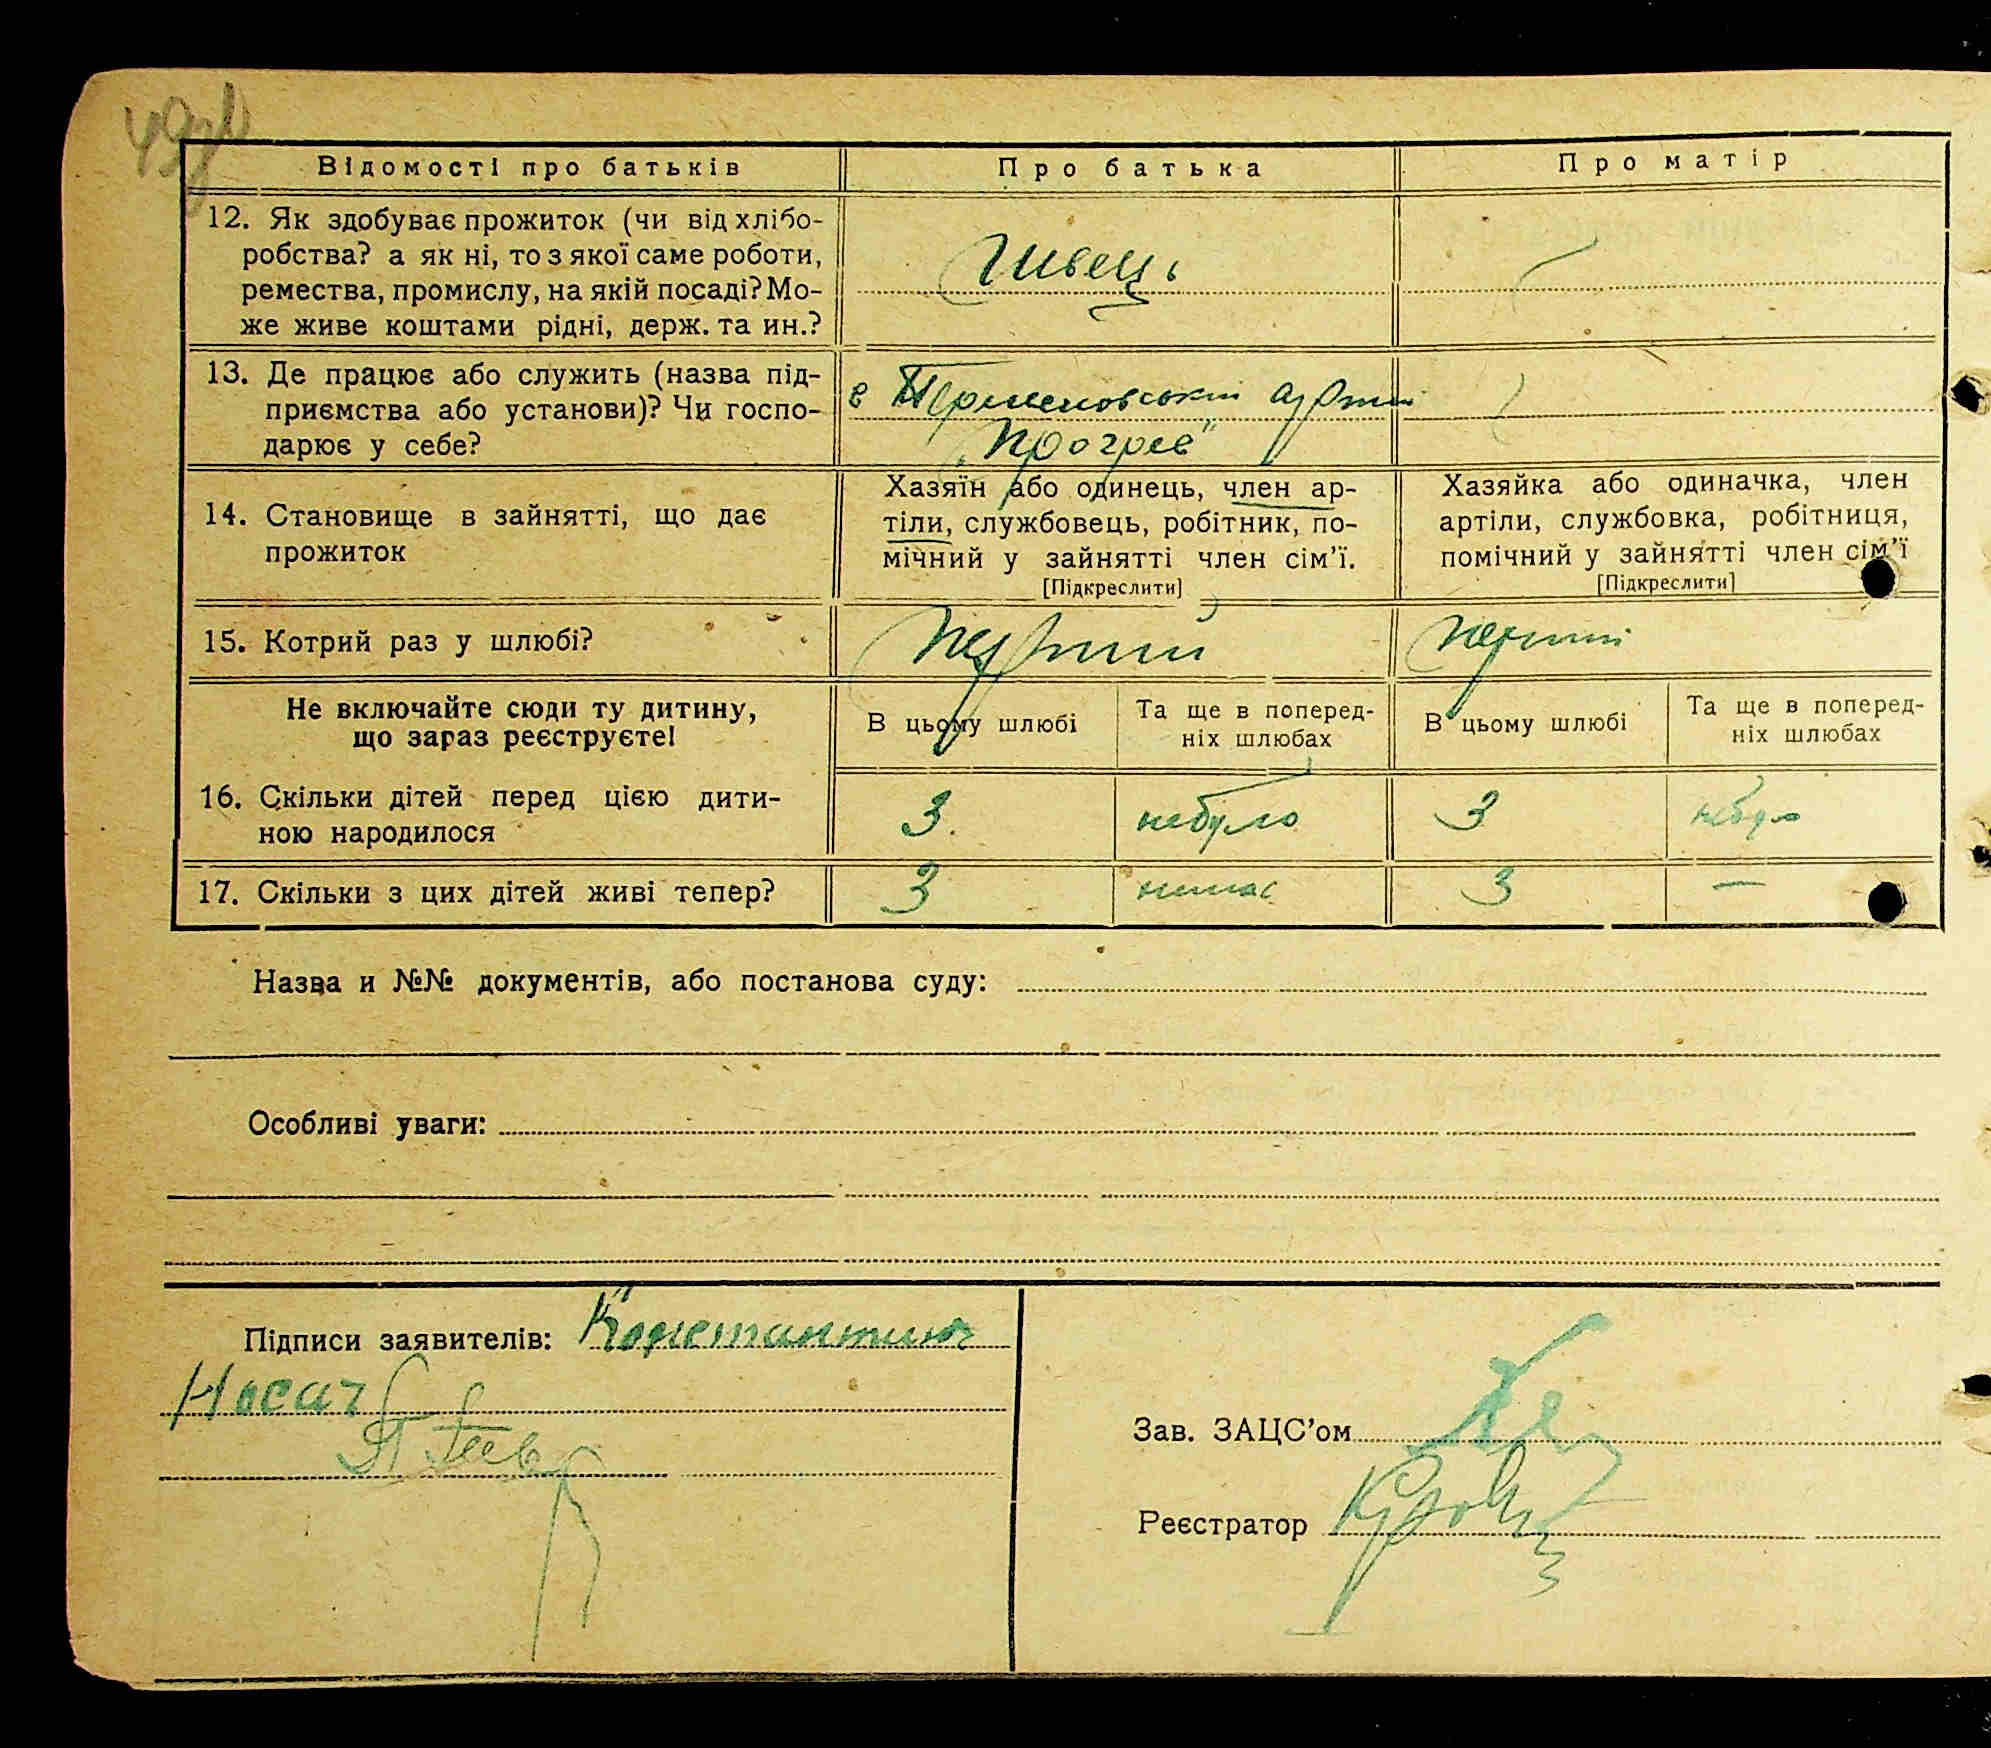 49зв
Відомості про батьків
Про батька
Про матір
12. Як здобуває прожиток (чи від хлібо-
робства? а як ні, то з якої саме роботи,
ремества, промислу, на якій посаді? Мо-
же живе коштами рідні, держ. та ин.?
Швець
13. Де працює або служить (назва під-
приємства або установи)? Чи госпо-
дарює у себе?
в артілі
"Прогрес"
14. Становище в зайнятті, що дає
прожиток
Хазяїн або одинець, член ар-
тіли, службовець, робітник, по-
мічний у зайнятті член сім'ї.
[Підкреслити]
Хазяйка або одиначка, член
артіли, службовка, робітниця,
помічний у зайнятті член сім'ї
[Підкреслити]
15. Котрий раз у шлюбі?
перший
перший
Не включайте сюди ту дитину,
що зараз реєструєте!
В цьому шлюбі
Та ще в поперед-
ніх шлюбах
В цьому шлюбі
Та ще в поперед-
ніх шлюбах
16. Скільки дітей перед цією дити-
ною народилося
3.
небуло
3
небуло
17. Скільки з цих дітей живі тепер?
3
немає
3
—
Назва и №№ документів, або постанова суду:
Особливі уваги:
Підписи заявителів: Константин
Носач
Зав. ЗАЦС'ом
Реєстратор